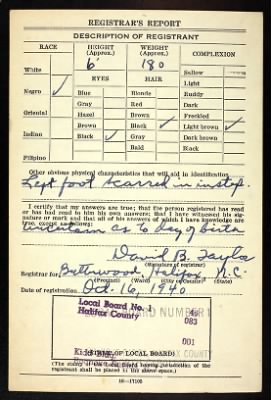 REGISTRAR'S REPORT
DESCRIPTION OF REGISTRANT
RACE
HEIGHT
(Approx.)
WEIGHT
(Approx.)
COMPLEXION
6'
180
White
Sallow
EYES
HAIR
Light
Negro ✓
Blue
Blonde
Ruddy
Gray
Red
Dark
Oriental
Hazel
Brown
Freckled
Brown
Black ✓
Light brown ✓
Indian
Black ✓
Gray
Dark brown
Bald
Black
Filipino
Other obvious physical characteristics that will aid in identification
Left foot scarred in instep.
I certify that my answers are true; that the person registered has read or has had read to him his own answers; that I have witnessed his signature or mark and that all of his answers of which I have knowledge are true, except as follows:
uncertain as to day of birth
David B.
(Signature of registrar)
Registrar for Halifax N.C.
Date of registration Oct. 16, 1940
Local Board No. 1
Halifax County
083
001
(STAMP OF LOCAL BOARD)
(The stamp of the Local Board having jurisdiction of the registrant shall be placed in the above space.)
16—17105